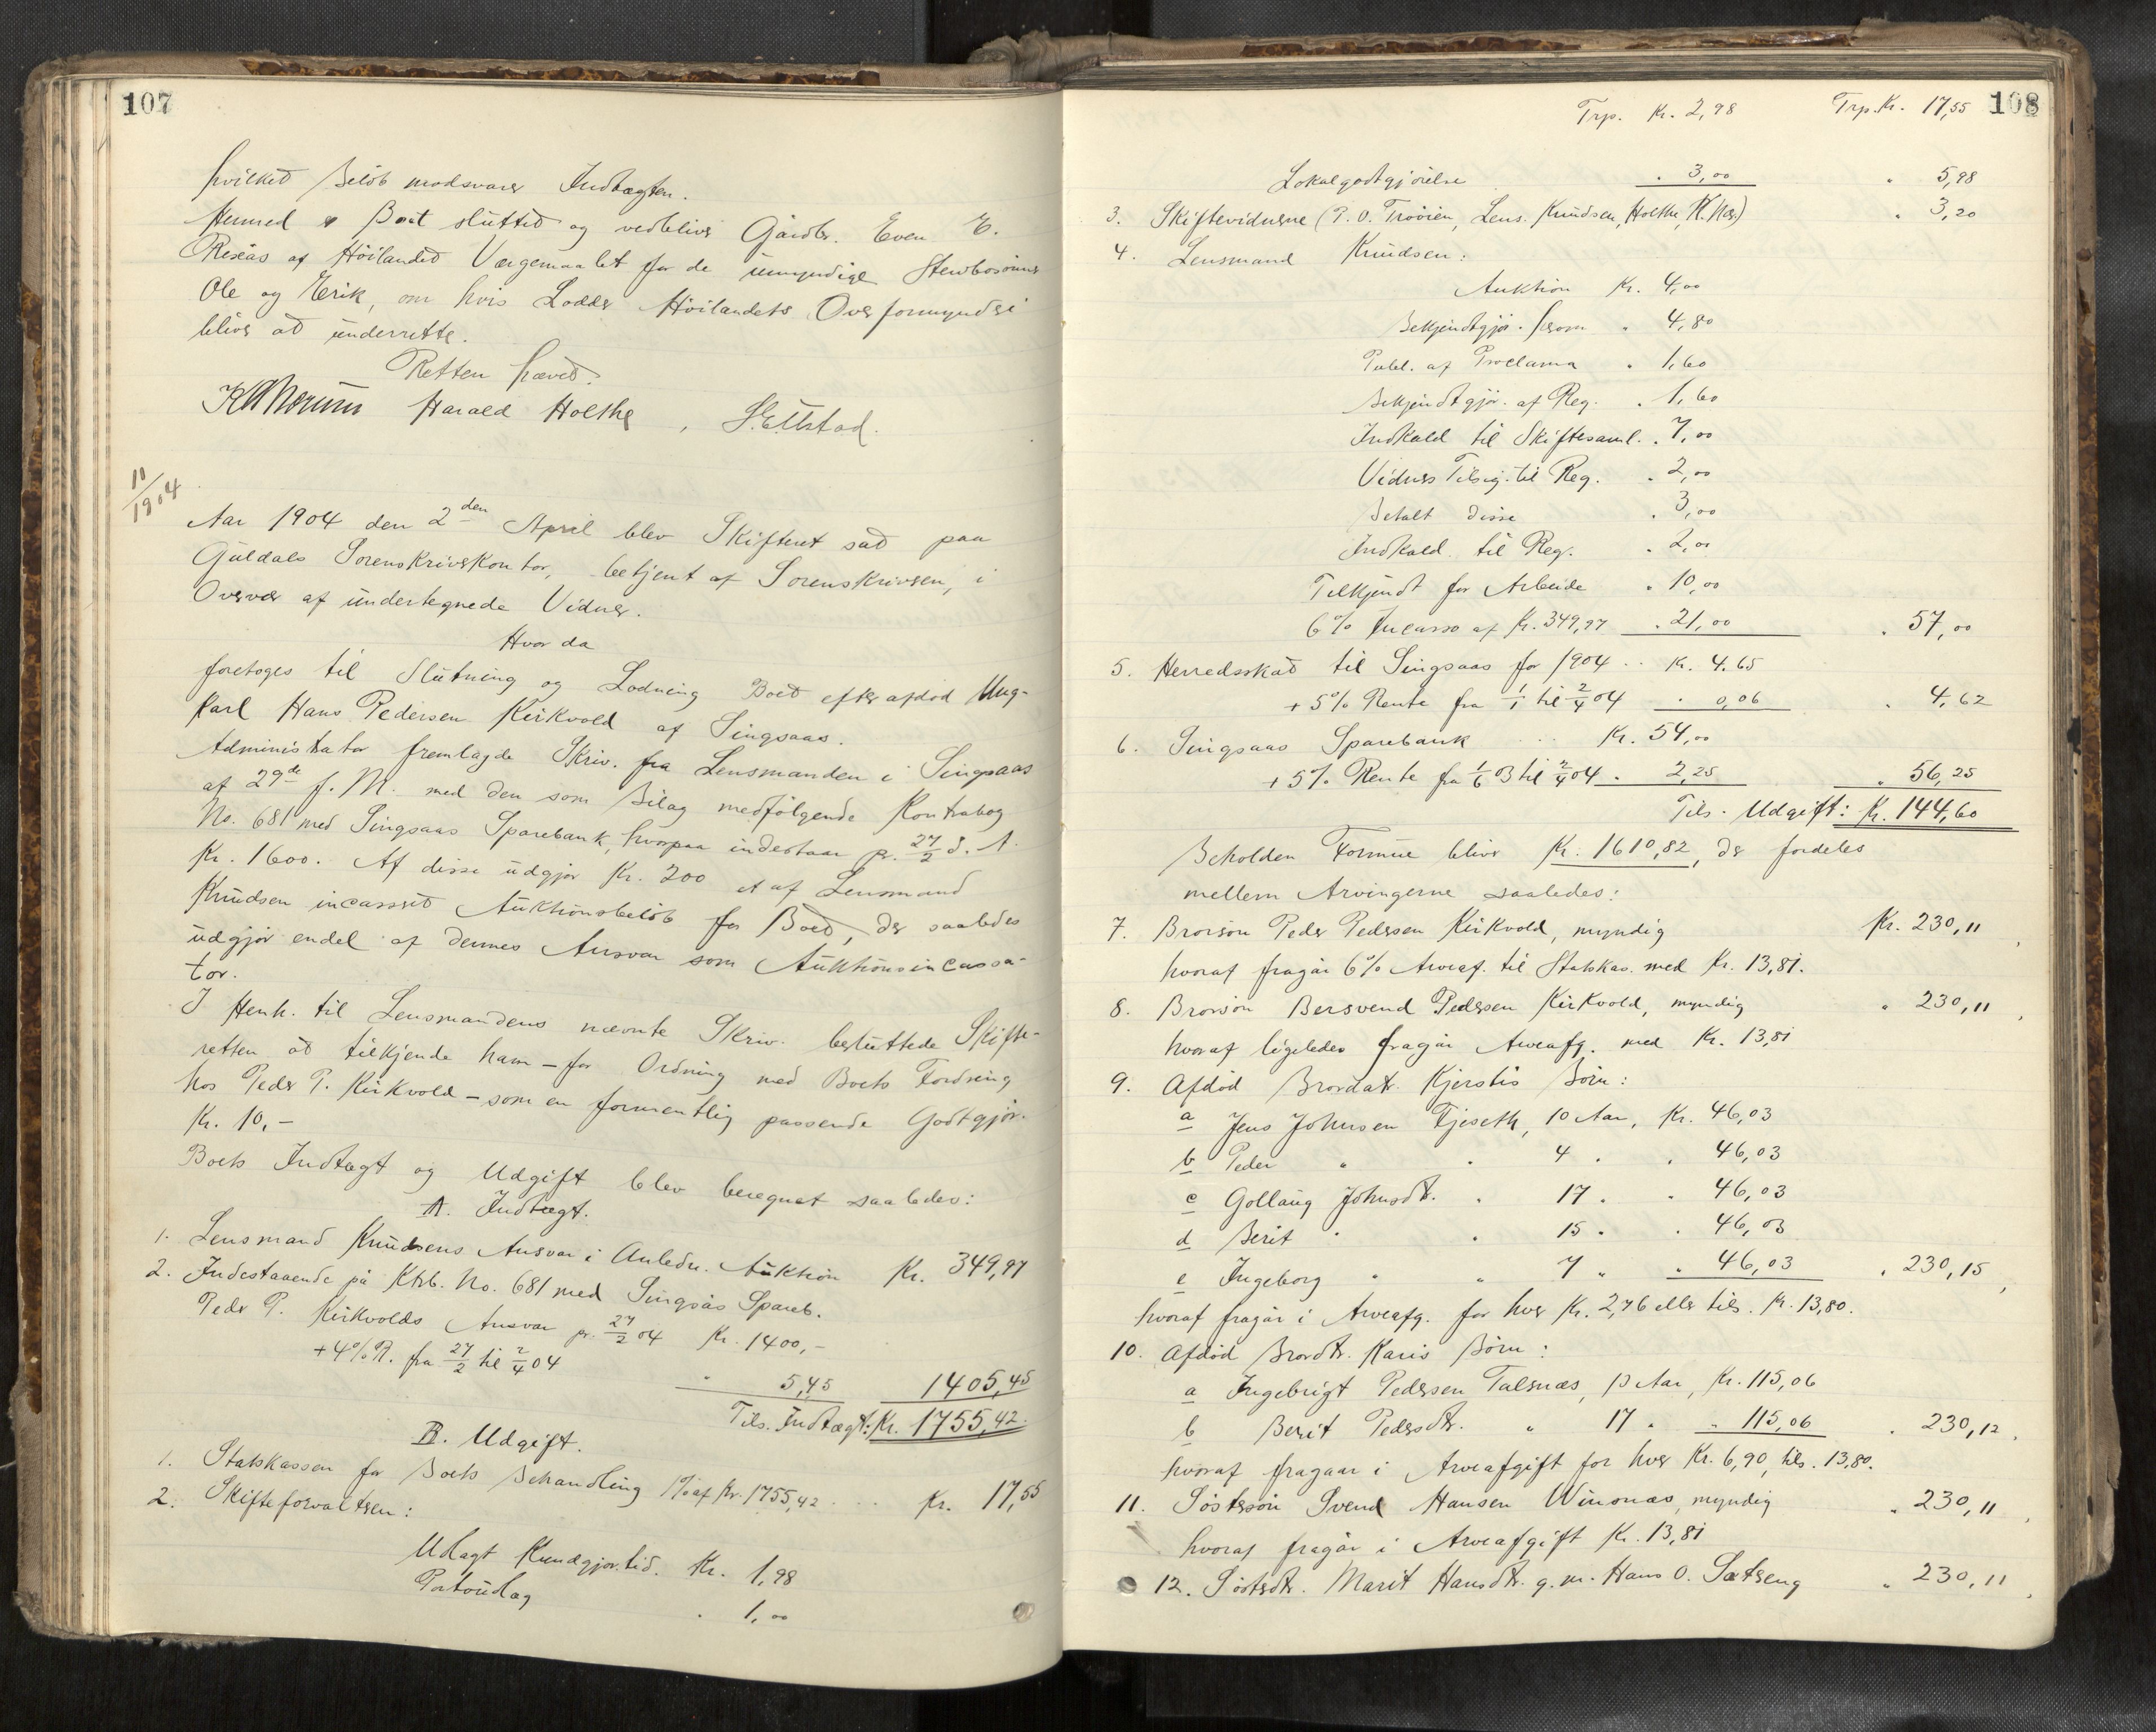 107
hvilket Beløb modsvarer Indtægten.
Hermed er Boet sluttet og vedbliver Gårdbr. Even E.
Reseås af Höilandet Værgemaalet for de umyndige Stervbosönner
Ole og Erik, om hvis Lodder Höilandets Overformynderi
bliver at underrette.
Retten hævet.
Harald Holthe, S. Ellstad.
11/1904
Aar 1904 den 2den April blev Skifteret sat paa
Guldals Sorenskriverkontor, betjent af Sorenskriveren, i
Overvær af undertegnede Vidner.
Hvor da
foretoges til Slutning og Lodning Boet efter afdöd Ung-
karl Hans Pedersen Kirkvold af Singsaas.
Administrator fremlagde Skriv. fra Lensmanden i Singsaas
af 29de f. M. med den som Bilag medfölgende Kontrabog
No. 681 med Singsaas Sparebank, hvorpaa indestaar pr. 27/2 d. A.
Kr. 1600. Af disse udgjør Kr. 200 et af Lensmand
Knudsen incasseret Auktionsbelöb for Boet, der saaledes
udgjør endel af dennes Ansvar som Auktionsincassa-
tor.
I Henh. til Lensmandens nævnte Skriv. besluttede Skifte-
retten at tilkjende ham – for Ordning med Boets Fordring
hos Peder P. Kirkvold – som en formentlig passende Godtgjør.
Kr. 10,–
Boets Indtægt og Udgift blev beregnet saaledes:
A. Indtægt.
1. Lensmand Knudsens Ansvar i Anledn. Auktion Kr. 349,97
2. Indestaaende på Ktrb. No. 681 med Singsås Spareb.
Peder P. Kirkvolds Ansvar pr. 27/2 04 Kr. 1400,–
+ 4% R. fra 27/2 til 2/4 04 " 5,45 1405,45
Tils. Indtægt: Kr. 1755,42.
B. Udgift.
1. Statskassen for Boets Behandling 1% af Kr. 1755,42 ... Kr. 17,55
2. Skifteforvalteren:
Udlagt Kundgjør.tid. Kr. 1,98
Portoudlæg " 1,00
108
Trp. Kr. 2,98 Trp. Kr. 17,55
Lokalgodtgjörelse " 3,00 " 5,98
3. Skiftevidnerne (P. O. Troöien, Lens. Knudsen, Holthe, K. Næs) " 3,20
4. Lensmand Knudsen:
Auktion Kr. 4,00
Bekjendtgjör. herom " 4,80
Publ. af Proclama " 1,60
Bekjendtgjör. af Reg. " 1,60
Indkald til Skiftesaml. " 7,00
Vidners Tilsig. til Reg. " 2,00
Betalt disse " 3,00
Indkald. til Reg. " 2,00
Tilkjendt for Arbeide " 10,00
6% Incasso af Kr. 349,97 " 21,00 " 57,00
5. Herredsskat til Singsaas for 1904 .. Kr. 4.65
+ 5% Rente fra 1/1 til 2/4 04 " 0,06 " 4,62
6. Singsaas Sparebank ... Kr. 54,00
+ 5% Rente fra 1/6 03 til 2/4 04 " 2,25 " 56,25
Tils. Udgift: Kr. 144,60
Beholden Formue bliver Kr. 1610,82, der fordeles
mellem Arvingerne saaledes:
7. Brorsön Peder Pedersen Kirkvold, myndig Kr. 230,11
hvoraf fragår 6% Arveaf. til Statskas. med Kr. 13,81.
8. Brorsön Bersvend Pedersen Kirkvold, myndig " 230,11
hvoraf ligeledes fragår Arveafg. med Kr. 13,81
9. Afdöd Brordatr. Kjerstis Börn:
a Jens Johnsen Fjeseth, 10 Aar, Kr. 46,03
b Peder " " 4 " " 46,03
c Gollaug Johnsdtr. " 17 " " 46,03
d Berit " " 15 " " 46,03
e Ingeborg " " 7 " " 46,03 " 230,15
hvoraf fragår i Arveafg. for hver Kr. 2,76 eller tils. Kr. 13,80.
10. Afdöd Brordtr. Karis Börn:
a Ingebrigt Pedersen Talsnæs, 13 Aar, Kr. 115,06
b Berit Pedersdtr. " 17 " " 115,06 " 230,12
hvoraf fragaar i Arveafgift for hver Kr. 6,90, tils. 13,80.
11. Söstersön Svend Hansen Winsnæs, myndig " 230,11
hvoraf fragår i Arveafgift Kr. 13,81
12. Sösterdtr. Marit Hansdtr. g. m. Hans O. Sætreng " 230,11